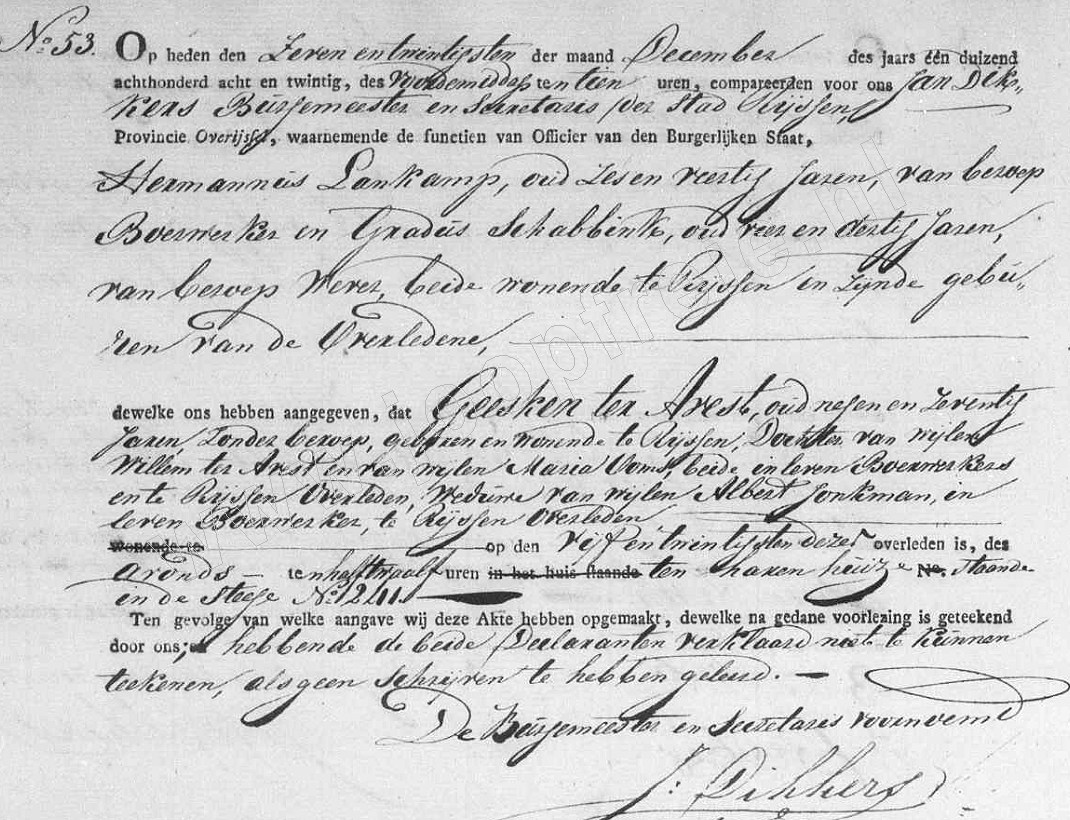 No. 53.
Op heden den Zeven en twintigsten der maand December des jaars één duizend
achthonderd acht en twintig, des Voordemiddags ten tien uren, compareerden voor ons Jan Dik-
kers Burgemeester en Secretaris der Stad Rijssen,
Provincie Overijssel, waarnemende de functien van Officier van den Burgerlijken Staat,
Hermannus Lankamp, oud Zes en veertig Jaren, van beroep
Boerwerker en Gradus Schabbink, oud vier en dertig Jaren,
van beroep Wever, beide wonende te Rijssen en Zijnde gebu-
ren van de Overledene,
dewelke ons hebben aangegeven, dat Geesken ter Avest, oud negen en Zeventig
Jaren Zonder beroep, geboren en wonende te Rijssen, Dochter van wijlen
Willem ter Avst en van wijlen Maria Ooms, beide in leven Boerwerkers
en te Rijssen Overleden, Weduwe van wijlen Albert Jonkman, in
leven Boerwerker, te Rijssen Overleden
wonende te op den vijf en twintigsten dezer overleden is, des
avonds ten half twaalf uren in het huis staande ten haren huize No. staande
in de Steege No. 1241.
Ten gevolge van welke aangave wij deze Akte hebben opgemaakt, dewelke na gedane voorlezing is geteekend
door ons; hebbende de beide Declaranten verklaard niet te kunnen
teekenen, als geen Schrijven te hebben geleerd.
De Burgemeester en Secretaris voornoemd
J. Dikkers
www.loopfree.nl